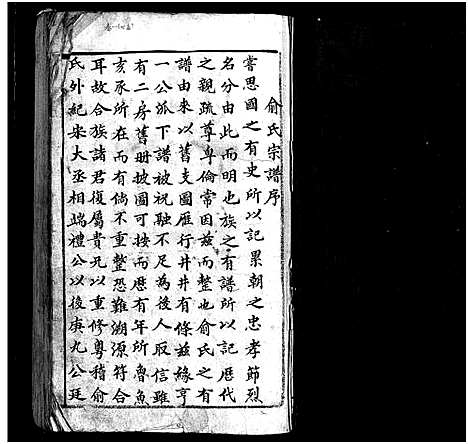 俞氏宗譜序
嘗思國之有史所以記累朝之忠孝節烈
名分由此而明也族之有譜所以記歷代
之親疏尊卑倫常因茲而整也俞氏之有
譜由來以舊支圖雁行井井有條茲緣亨
一公派下譜被祝融不足為後人取信雖
有二房舊冊披圖可按而歷有年所魯魚
亥豕所在而有倘不重整恐難溯源符合
耳故合族諸君復屬貴元以重修粵稽俞
氏外紀宋大丞相端禮公以後庚九公廷